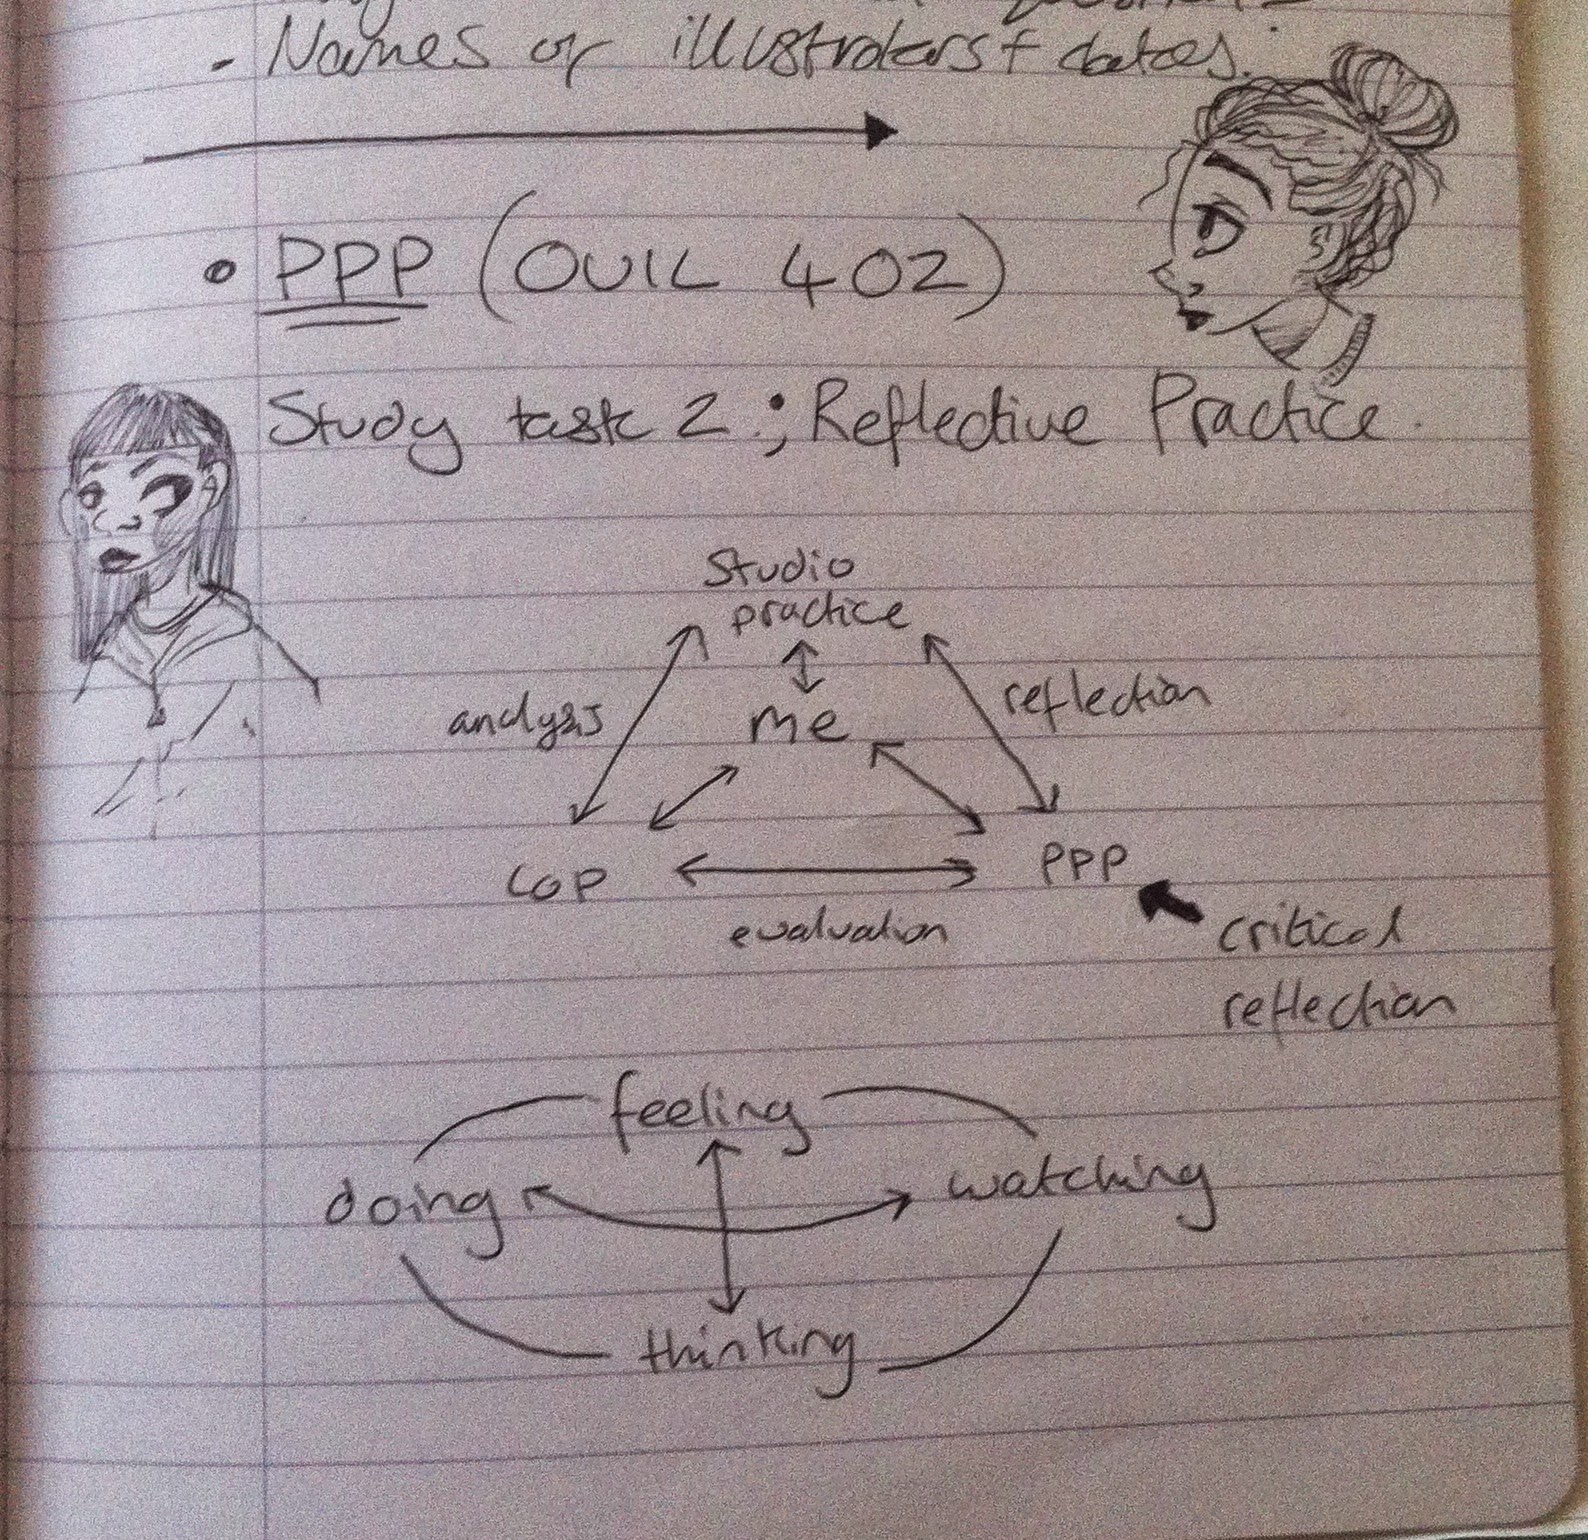 - Names of illustrators + dates.
• PPP (OUIL 402)
Study task 2 :; Reflective Practice.
Studio
practice
analysis
me
reflection
COP
PPP
evaluation
critical
reflection
feeling
doing
watching
thinking